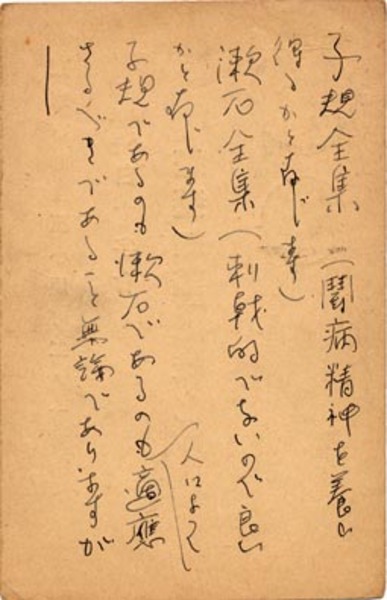 子規全集（鬪病精神を養ひ
得るかと存じます）
漱石全集（刺戟的でないので良い
かと存じます）
人によつて
子規であるのも漱石であるのも適應
さるべきであること無論でありますが